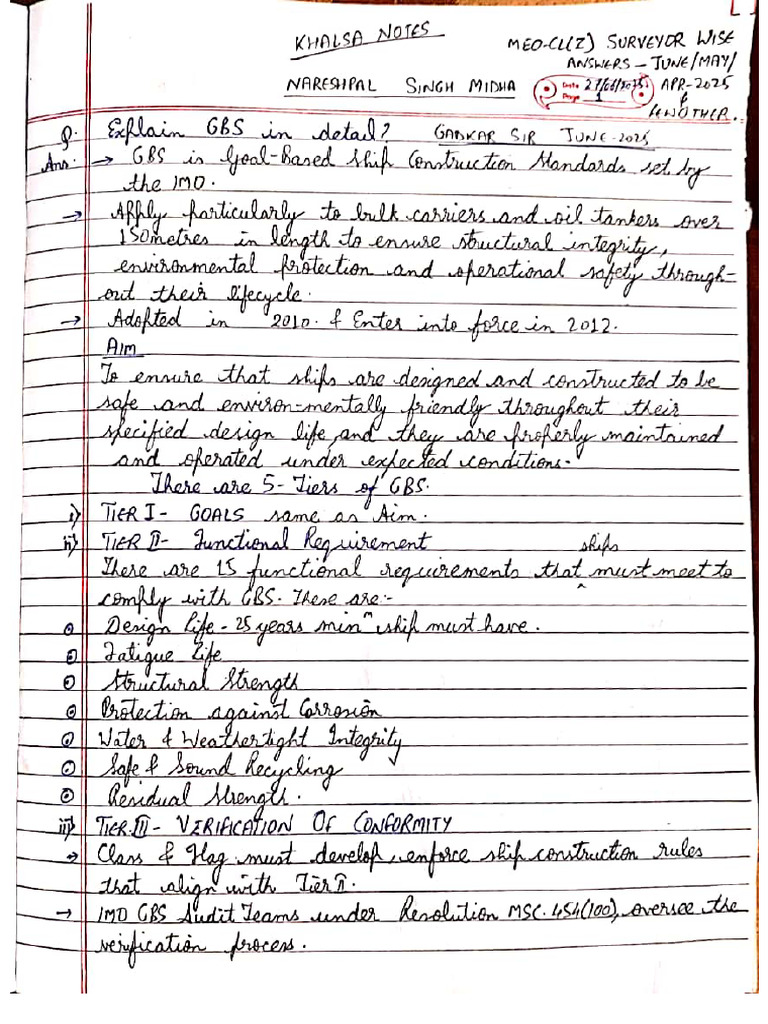 KHALSA NOTES
MEO-CL(I) SURVEYOR WISE
ANSWERS - JUNE/MAY/
NARESHPAL SINGH MIDHA
Date
Page 1
APR-2025
&
ANOTHER.
Q. Explain GBS in detail? GADKAR SIR JUNE-2025
Ans. → GBS is Goal-Based Ship Construction Standards set by
the IMO.
→ Apply particularly to bulk carriers and oil tankers over
150metres in length to ensure structural integrity,
environmental protection and operational safety through-
out their lifecycle.
→ Adopted in 2010. & Enter into force in 2012.
Aim
To ensure that ships are designed and constructed to be
safe and environ-mentally friendly throughout their
specified design life, and they are properly maintained
and operated under expected conditions.
There are 5-Tiers of GBS.
i) TIER I - GOALS same as Aim.
ii) TIER II - Functional Requirement
There are 15 functional requirements that ships must meet to
comply with GBS. These are:-
Design Life - 25 years minm ship must have.
Fatigue Life
Structural Strength
Protection against Corrosion
Water & Weathertight Integrity
Safe & Sound Recycling
Residual Strength.
iii) TIER.III - VERIFICATION OF CONFORMITY
→ Class & Flag must develop, enforce ship construction rules
that align with Tier II.
→ IMO GBS Audit Teams under Resolution MSC.454(100), oversee the
verification process.